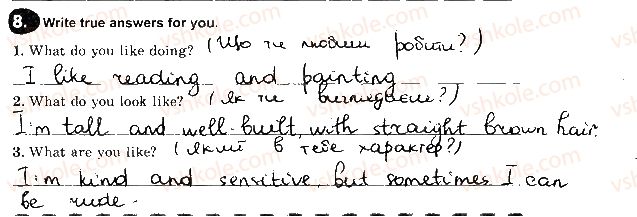 8. Write true answers for you.
1. What do you like doing? (Що ти любиш робити?)
I like reading and painting
2. What do you look like? (Як ти виглядаєш?)
I'm tall and well-built, with straight brown hair.
3. What are you like? (Який в тебе характер?)
I'm kind and sensitive, but sometimes I can
be rude.